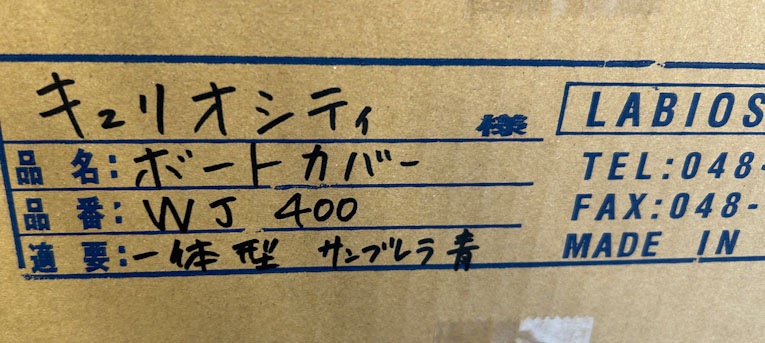 キュリオシティ 様
品名:ボートカバー
品番:WJ 400
適要:一体型 サンブレラ青
LABIOS
TEL:048-
FAX:048-
MADE IN